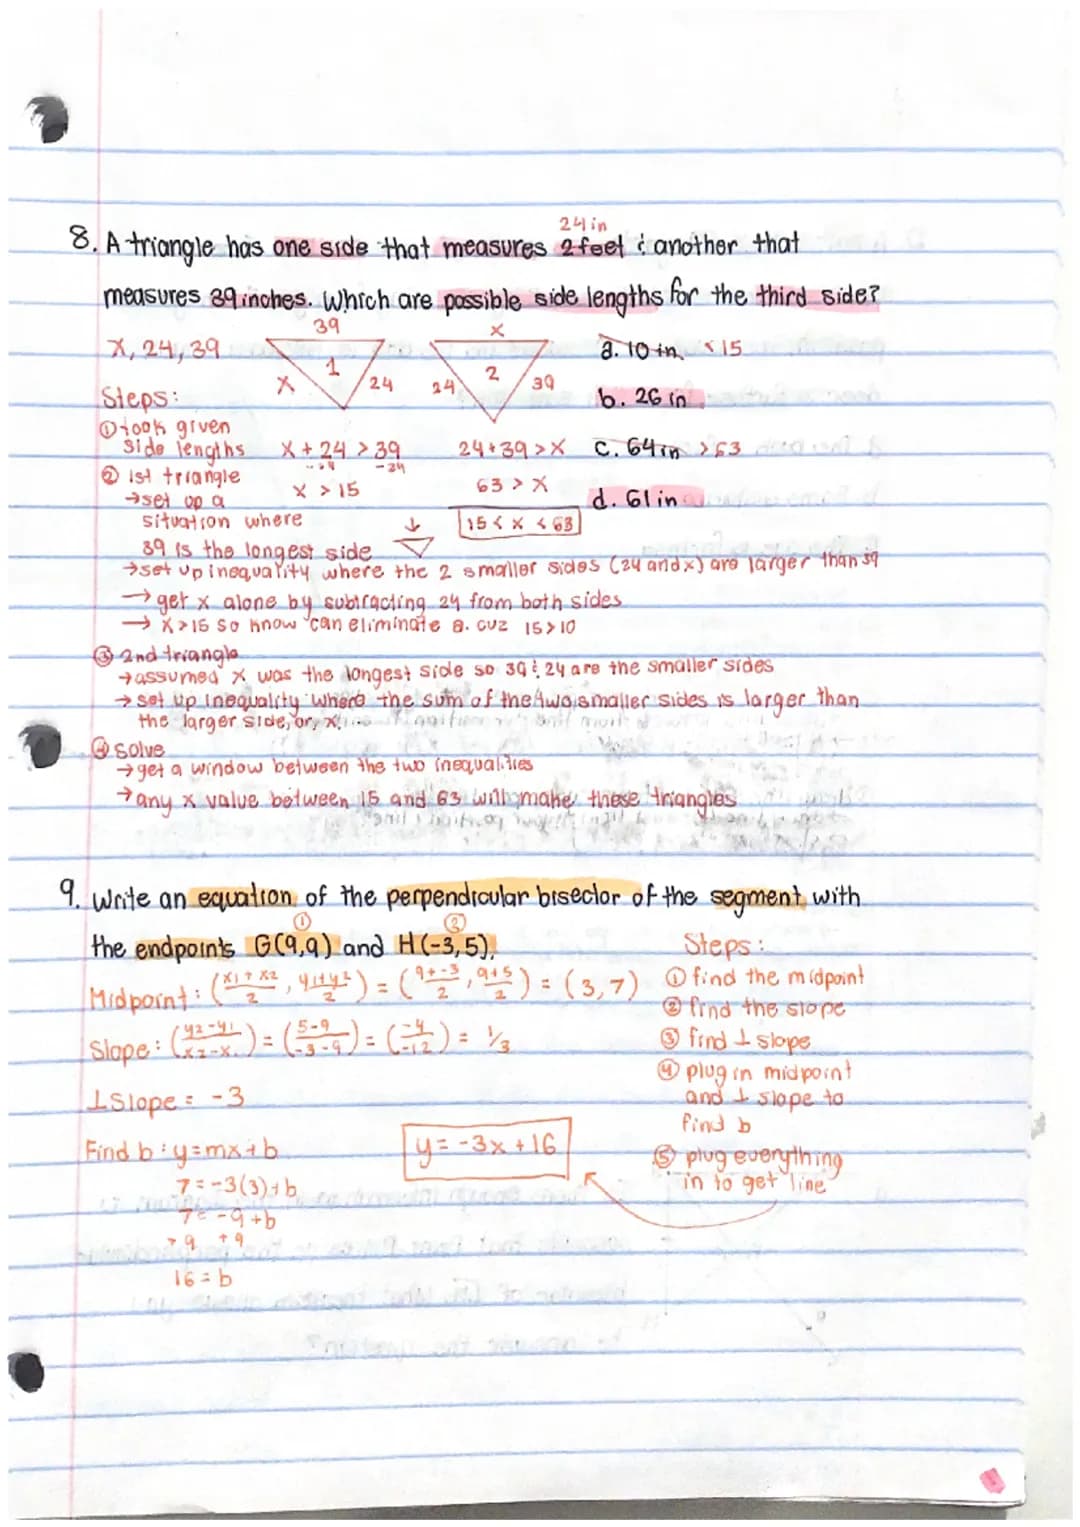 24 in
8. A triangle has one side that measures 2 feet & another that
measures 39 inches. Which are possible side lengths for the third side?
x, 24, 39
39
1
x
24
x
2
24
39
a. 10 in < 15
b. 26 in
Steps:
① took given
side lengths
x + 24 > 39
-24 -24
x > 15
24+39 > x
63 > x
15 < x < 63
c. 64 in > 63
d. 61 in
② 1st triangle
→set up a
situation where
39 is the longest side
→set up inequality where the 2 smaller sides (24 and x) are larger than 39
→ get x alone by subtracting 24 from both sides
→ x>15 so know can eliminate a. cuz 15>10
③ 2nd triangle
→assumed x was the longest side so 39 & 24 are the smaller sides
→ set up inequality where the sum of the two smaller sides is larger than
the larger side, or, x.
④ solve
→get a window between the two inequalities
→any x value between 15 and 63 will make these triangles
9. Write an equation of the perpendicular bisector of the segment with
① ②
the endpoints G(9,9) and H(-3,5).
Midpoint: (x1+x2/2, y1+y2/2) = (9+-3/2, 9+5/2) = (3,7)
Slope: (y2-y1/x2-x1) = (5-9/-3-9) = (-4/-12) = 1/3
⊥Slope = -3
Find b: y=mx+b
7=-3(3)+b
7=-9+b
+9 +9
16=b
y = -3x +16
Steps:
① find the midpoint
② find the slope
③ find ⊥ slope
④ plug in midpoint
and ⊥ slope to
find b
⑤ plug everything
in to get line